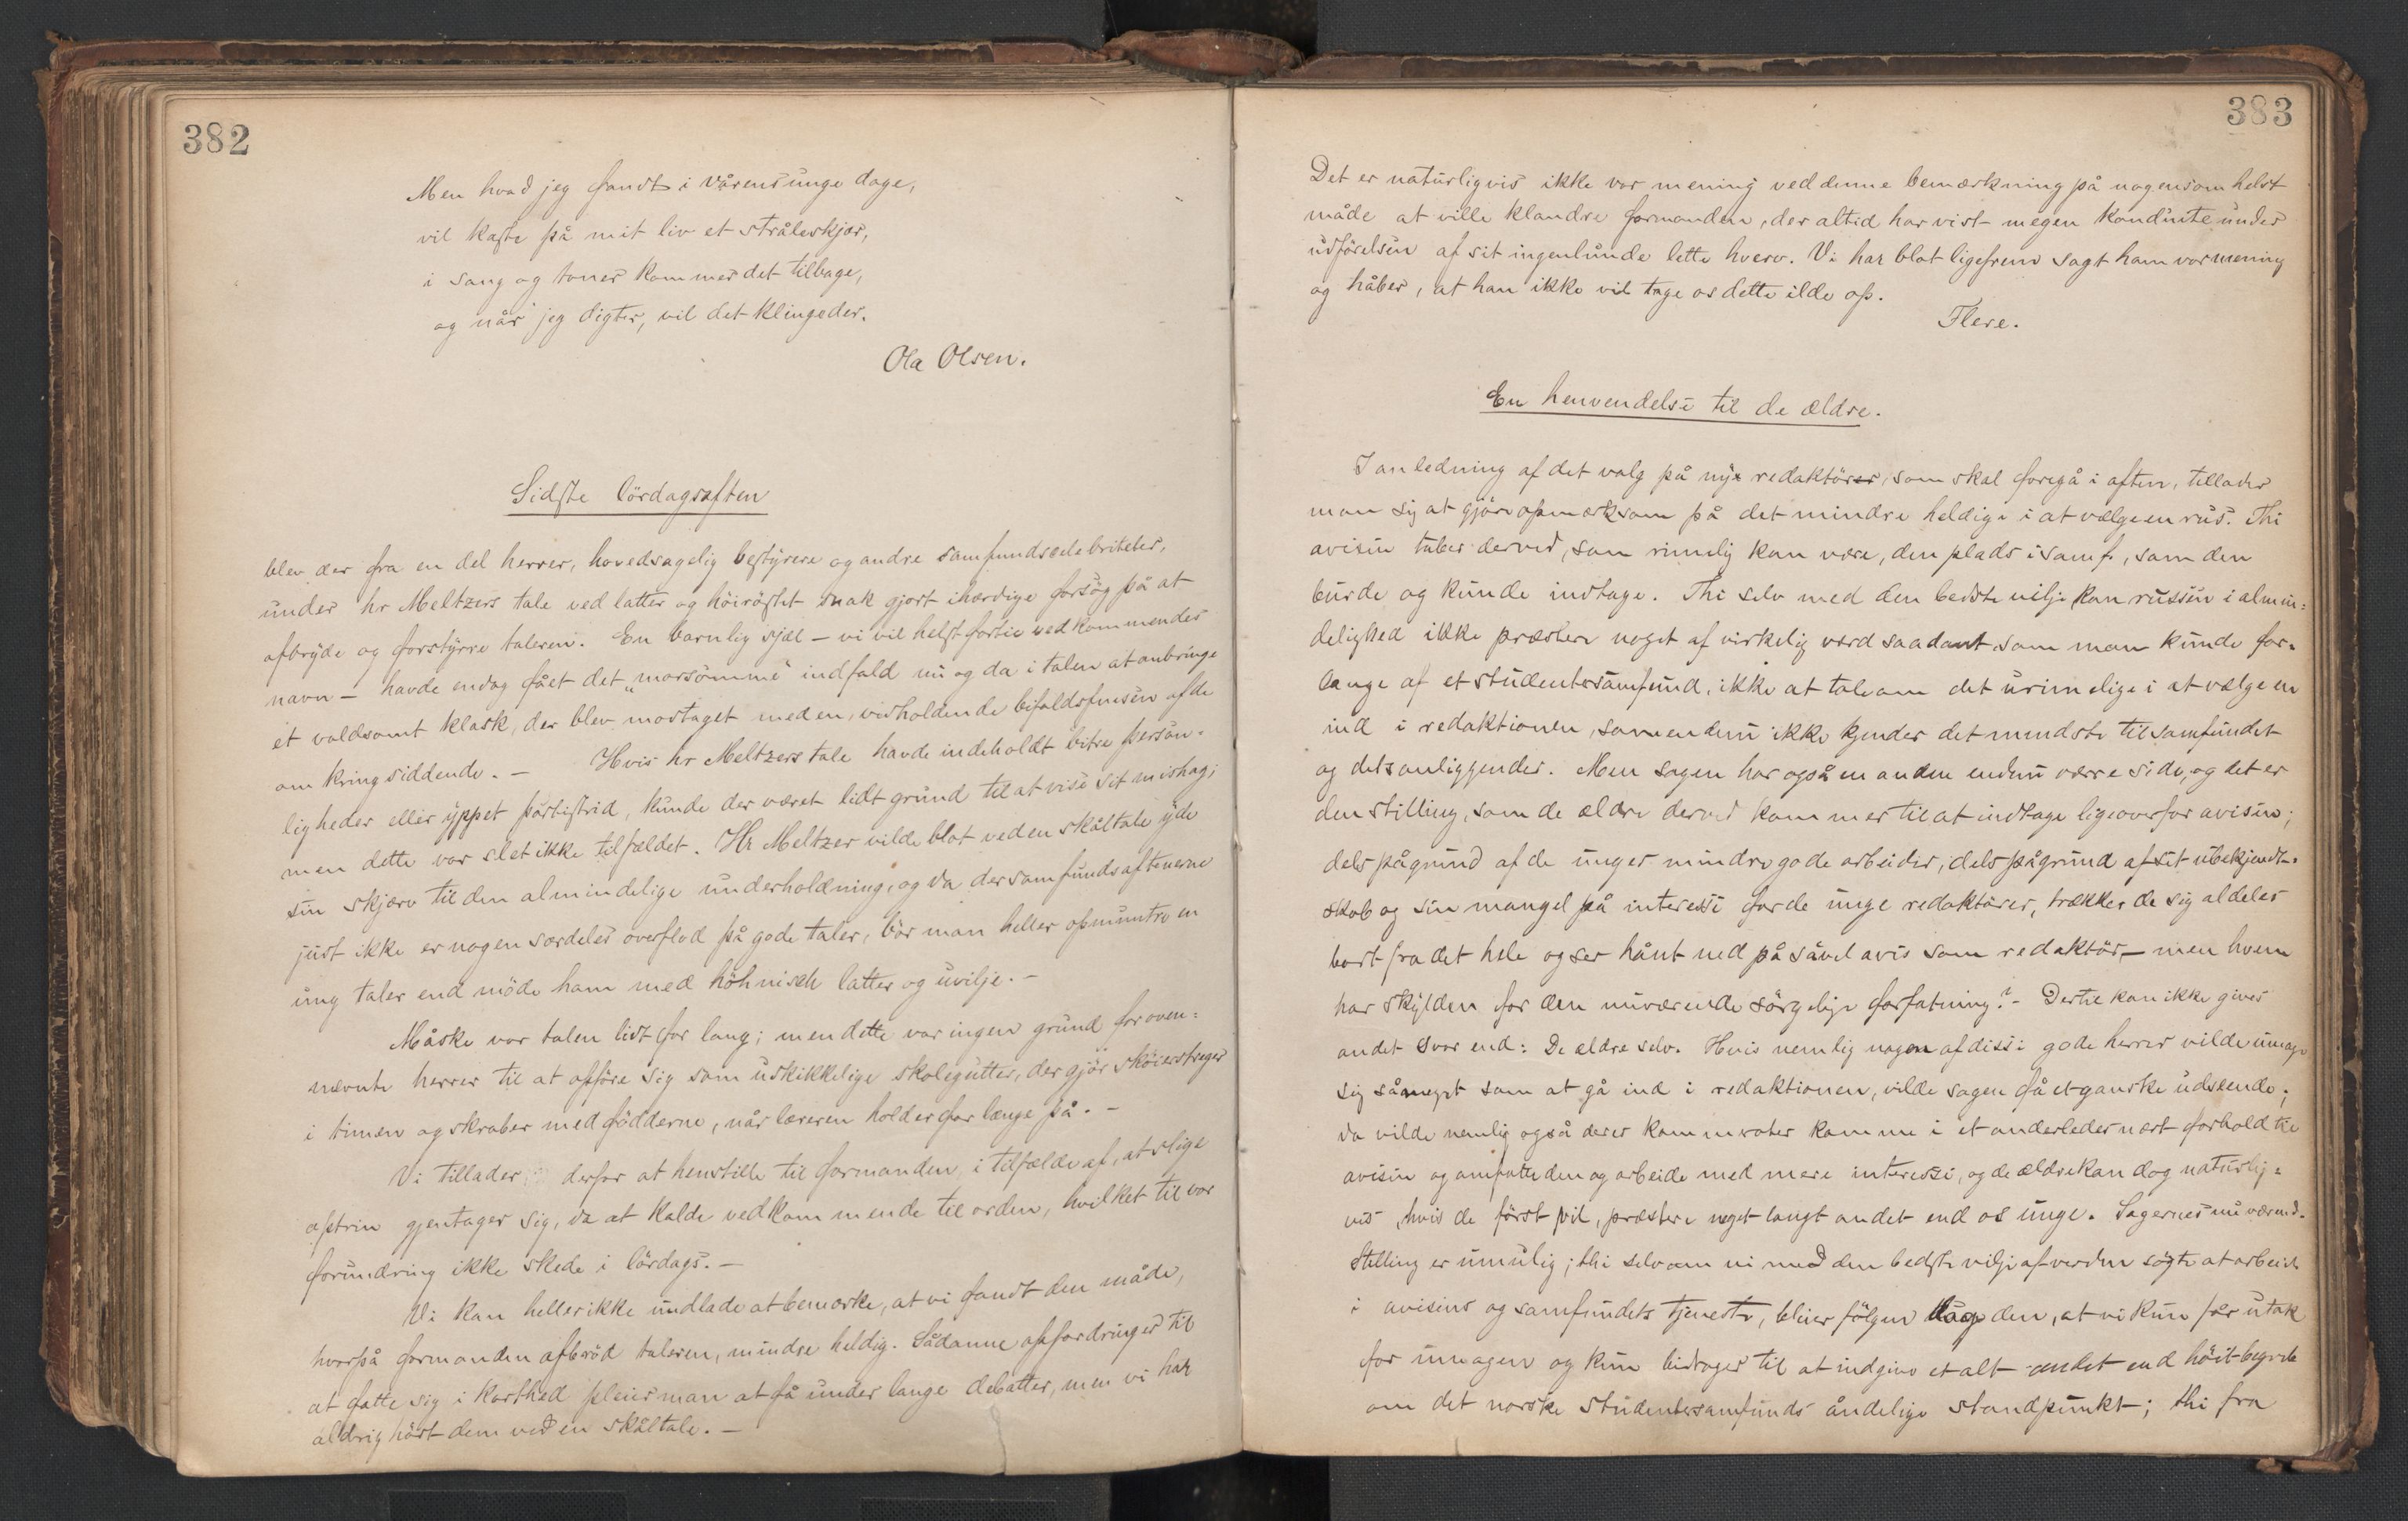 382
Men hvad jeg fandt i vårens unge dage,
vil kaste på mit liv et stråleskjær,
i sang og toner kommer det tilbage,
og når jeg digter, vil det klinge der.
Ola Olsen.
Sidste lördagsaften
blev der fra en del herrer, hovedsagelig bestyrere og andre samfundscelebriteter,
under hr Meltzers tale ved latter og höiröstet snak gjort ihærdige forsög på at
afbryde og forstyrre taleren. En barnlig sjæl – vi vil helst fortie vedkommendes
navn – havde endog fået det "morsomme" indfald nu og da i talen at anbringe
et voldsomt klask, der blev modtaget med en vedholdende bifaldsfnisen af de
omkringsiddende. – Hvis hr Meltzers tale havde indeholdt bitre person-
ligheder eller yppet partistrid, kunde der været lidt grund til at vise sit mishag;
men dette var slet ikke tilfældet. Hr Meltzer vilde blot ved en skåltale yde
sin skjærv til den almindelige underholdning, og da der samfundsaftenerne
just ikke er nogen særdeles overflod på gode taler, bör man heller opmuntre en
ung taler end möde ham med höhnisch latter og uvilje. –
Måske var talen lidt for lang; men dette var ingen grund for oven=
nævnte herrer til at opföre sig som uskikkelige skolegutter, der gjör skøierstreger
i timen og skraber med födderne, når læreren holder for længe på. –
Vi tillader derfor at henstille til formanden, i tilfælde af, at slige
optrin gjentager sig, da at kalde vedkommende til orden, hvilket til vor
forundring ikke skede i lördags. –
Vi kan heller ikke undlade at bemærke, at vi fandt den måde,
hvorpå formanden afbröd taleren, mindre heldig. Sådanne opfordringer til
at fatte sig i korthed pleier man at få under lange debatter, men vi har
aldrig hört dem ved en skåltale. –
383
Det er naturligvis ikke vor mening ved denne bemærkning på nogensomhelst
måde at ville klandre formanden, der altid har vist megen konduite under
udförelsen af sit ingenlunde lette hverv. Vi har blot ligefrem sagt ham vor mening
og håber, at han ikke vil tage os dette ilde op.
Flere.
En henvendelse til de ældre.
I anledning af det valg på ny redaktör, som skal foregå i aften, tillader
man sig at gjöre opmærksom på det mindre heldige i at vælge en rus. Thi
avisen taber derved, som rimelig kan være, den plads i samf., som den
burde og kunde indtage. Thi selv med den bedste vilje kan russen i almin=
delighed ikke præstere noget af virkelig værd saadant som man kunde for=
lange af et studentersamfund, ikke at tale om det urimelige i at vælge en
ind i redaktionen, som endnu ikke kjender det mindste til samfundet
og dets anliggender. Men sagen har også en anden endnu værre side, og det er
den stilling, som de ældre derved kommer til at indtage ligeoverfor avisen;
dels på grund af de unges mindre gode arbeider, dels på grund af sit ubekjendt-
skab og sin mangel på interesse for de unge redaktörer, trækker de sig aldeles
bort fra det hele og ser hånt ned på såvel avis som redaktör, – men hvem
har skylden for den nuværende sörgelige forfatning? – Dertil kan ikke gives
andet svar end: De ældre selv. Hvis nemlig nogen af disse gode herrer vilde umage
sig såmeget som at gå ind i redaktionen, vilde sagen få et ganske udseende;
da vilde nemlig også deres kammerater komme i et anderledes nært forhold til
avisen og omfatte den og arbeide med mere interesse, og de ældre kan dog naturlig=
vis, hvis de först vil, præstere noget langt andet end os unge. Sagernes nuværend.
Stilling er umulig; thi selv om vi med den bedste vilje af verden sögte at arbeide
i avisens og samfundets tjeneste, bliver fölgen dog den, at vi kun får utak
for umagen og kun bidrager til at indgive et alt andet end höit begreb
om det norske studentersamfunds åndelige standpunkt; thi fra